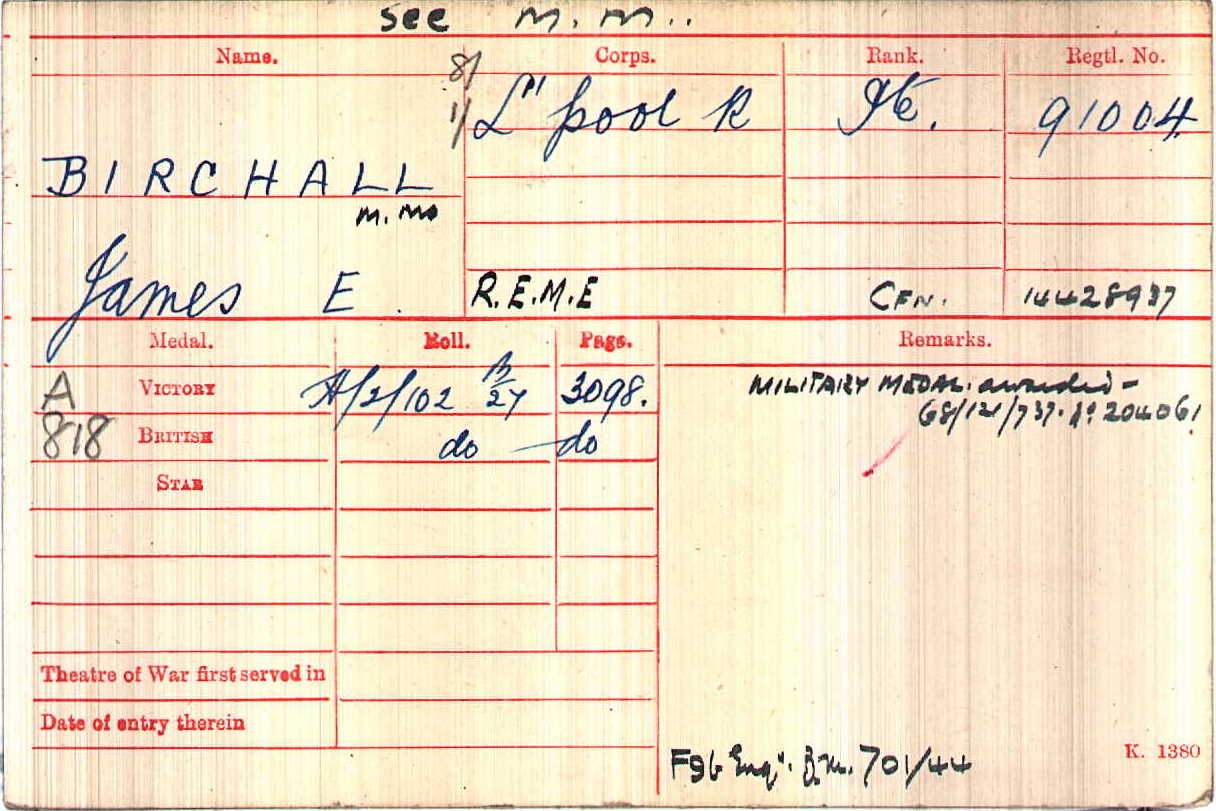 see M.M..
Name. Corps. Rank. Regtl. No.
8/
1/ L'pool R Pte. 91004
BIRCHALL
M.M.
James E. R.E.M.E CFN. 14428937
Medal. Roll. Page. Remarks.
A VICTORY H/2/102 B/27 3098. MILITARY MEDAL. awarded -
68/121/737. No 204061
818 BRITISH do do
STAR
Theatre of War first served in
Date of entry therein
F96 Enq. 701/44
K. 1380